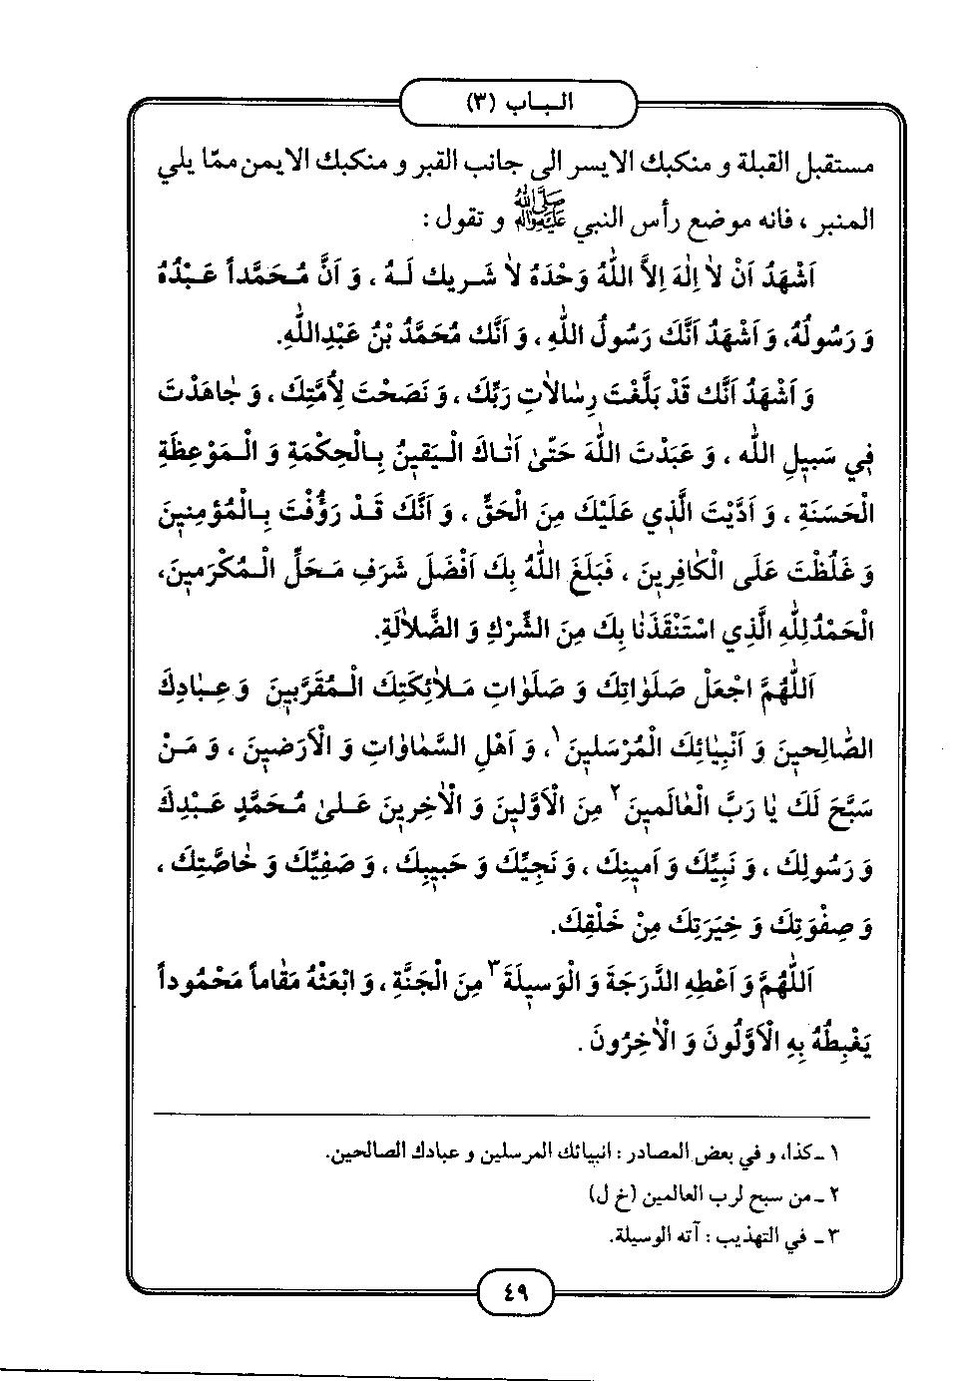 الـبـاب (٣)
مستقبل القبلة و منكبك الايسر الى جانب القبر و منكبك الايمن ممّا يلي
المنبر ، فانه موضع رأس النبي ﷺ و تقول :
اَشْهَدُ اَنْ لاٰ اِلٰهَ اِلاَّ اللّٰهُ وَحْدَهُ لاٰ شَـريك لَـهُ ، وَ اَنَّ مُـحَمَّداً عَـبْدُهُ
وَ رَسُولُهُ، وَ اَشْهَدُ اَنَّكَ رَسُولُ اللّٰهِ ، وَ اَنَّك مُحَمَّدُ بْنُ عَبْدِاللّٰهِ.
وَ اَشْهَدُ اَنَّك قَدْ بَلَّغْتَ رِسٰالاٰتِ رَبِّكَ ، وَ نَصَحْتَ لِاُمَّتِكَ ، وَ جٰاهَدْتَ
فِي سَبِيلِ اللّٰه ، وَ عَبَدْتَ اللّٰهَ حَتّىٰ اَتٰاكَ الْـيَقينُ بِـالْحِكْمَةِ وَ الْـمَوْعِظَةِ
الْحَسَنَةِ ، وَ اَدَّيْتَ الَّذِي عَلَيْكَ مِنَ الْحَقِّ ، وَ اَنَّكَ قَـدْ رَؤُفْتَ بِـالْمُؤمِنينَ
وَ غَلُظْتَ عَلَى الْكٰافِرِينَ ، فَبَلَغَ اللّٰهُ بِكَ اَفْضَلَ شَرَفِ مَـحَلِّ الْـمُكْرَمينَ،
الْحَمْدُلِلّٰهِ الَّذِي اسْتَنْقَذَنٰا بِكَ مِنَ الشِّرْكِ وَ الضَّلاٰلَةِ.
اَللّٰهُمَّ اجْعَلْ صَلَوٰاتِكَ وَ صَلَوٰاتِ مَـلاٰئِكَتِكَ الْـمُقَرَّبينَ وَ عِـبٰادِكَ
الصّٰالِحينَ وَ اَنْبِيٰائِكَ الْمُرْسَلينَ ١، وَ اَهْلِ السَّمٰاوٰاتِ وَ الْاَرَضينَ ، وَ مَـنْ
سَبَّحَ لَكَ يٰا رَبَّ الْعٰالَمينَ ٢ مِنَ الْاَوَّلينَ وَ الْآخِرينَ عَـلىٰ مُـحَمَّدٍ عَـبْدِكَ
وَ رَسُولِكَ ، وَ نَبِيِّكَ وَ اَمينِكَ ، وَ نَجِيِّكَ وَ حَبيبِكَ ، وَ صَفِيِّكَ وَ خٰاصَّتِكَ ،
وَ صِفْوَتِكَ وَ خِيَرَتِكَ مِنْ خَلْقِكَ.
اَللّٰهُمَّ وَ اَعْطِهِ الدَّرَجَةَ وَ الْوَسيلَةَ ٣ مِنَ الْجَنَّةِ ، وَ ابْعَثْهُ مَقٰاماً مَحْمُوداً
يَغْبِطُهُ بِهِ الْاَوَّلُونَ وَ الْآخِرُونَ .
١ ـ كذا، و في بعض المصادر : انبيائك المرسلين و عبادك الصالحين.
٢ ـ من سبح لرب العالمين (خ ل)
٣ ـ في التهذيب : آته الوسيلة.
٤٩